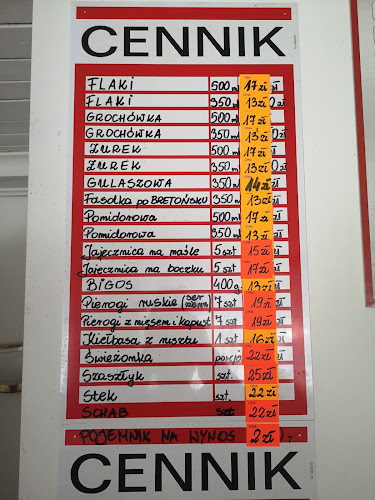 CENNIK
FLAKi 500ml 17 zł
FLAKi 350ml 13 zł
GROCHÓWKA 500ml 17 zł
GROCHÓWKA 350ml 13 zł
ŻUREK 500ml 17 zł
ŻUREK 350ml 13 zł
GULASZOWA 350ml 14 zł
Fasolka po BRETOŃSKU 350ml 13 zł
Pomidorowa 500ml 17 zł
Pomidorowa 350ml 13 zł
Jajecznica na maśle 5 szt 15 zł
Jajecznica na boczku 5 szt 17 zł
BIGOS 400g 13 zł
Pierogi ruskie 7 szt 19 zł
Pierogi z mięsem i kapust 7 szt 19 zł
Kiełbasa z rusztu 1 szt 16 zł
Świeżonka porcja 22 zł
Szaszłyk szt. 25 zł
Stek szt. 22 zł
SCHAB szt 22 zł
POJEMNIK NA WYNOS 2 zł
CENNIK